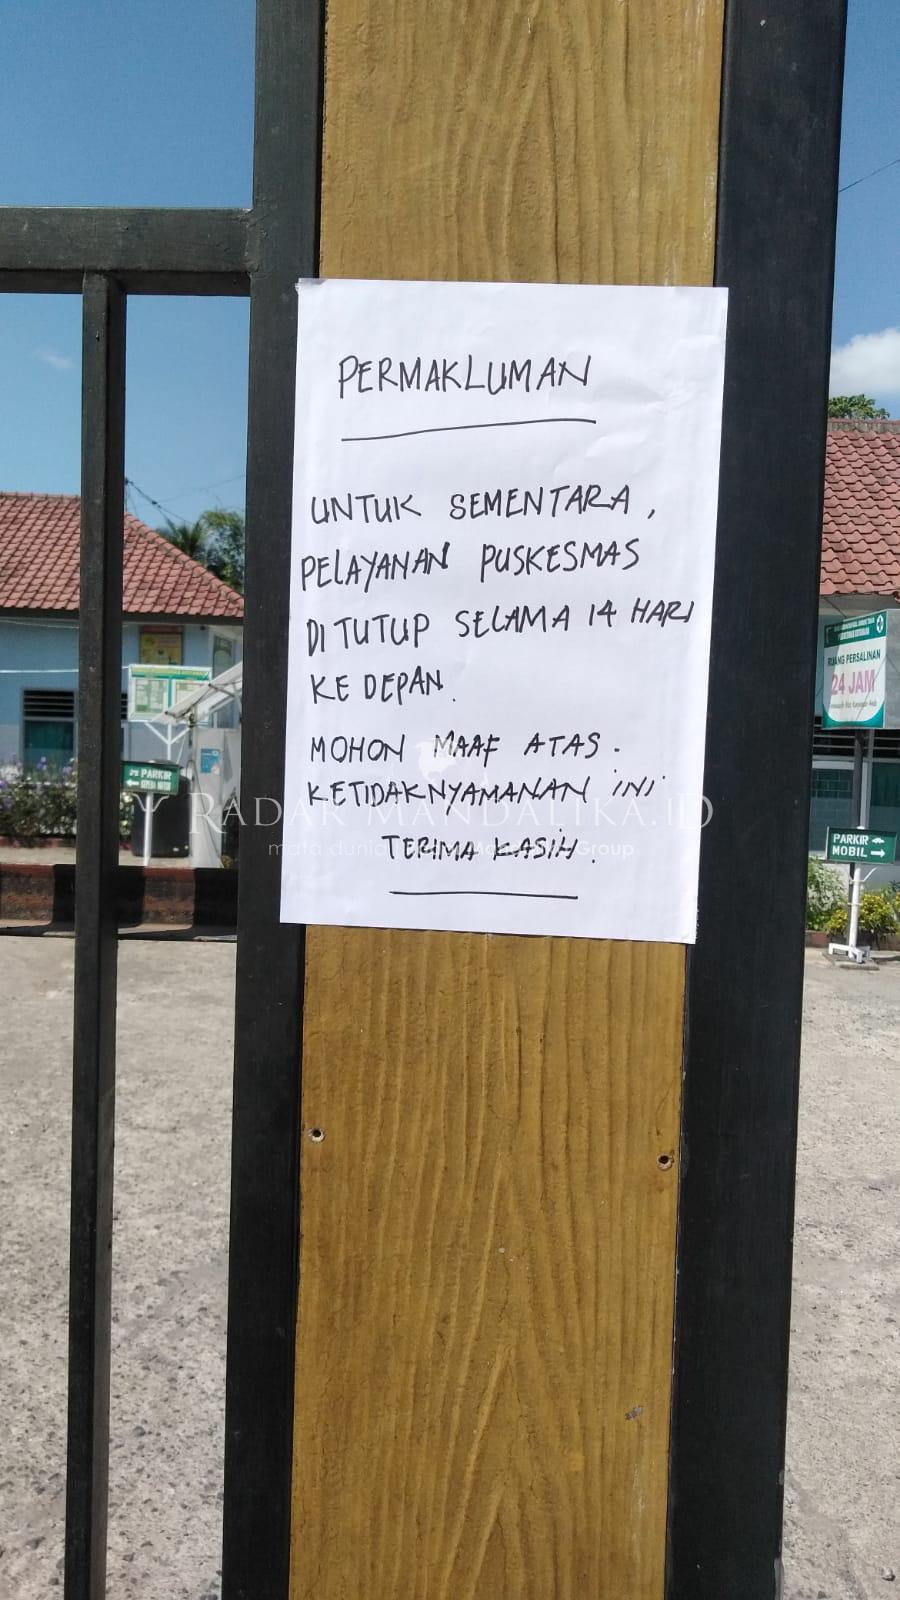 PERMAKLUMAN
UNTUK SEMENTARA,
PELAYANAN PUSKESMAS
DI TUTUP SELAMA 14 HARI
KE DEPAN.
MOHON MAAF ATAS.
KETIDAKNYAMANAN INI
TERIMA KASIH.
RADAR MANDALIKA.ID
mata dunia
Group
PARKIR
SEPEDA MOTOR
RUANG PERSALINAN
24 JAM
PARKIR
MOBIL